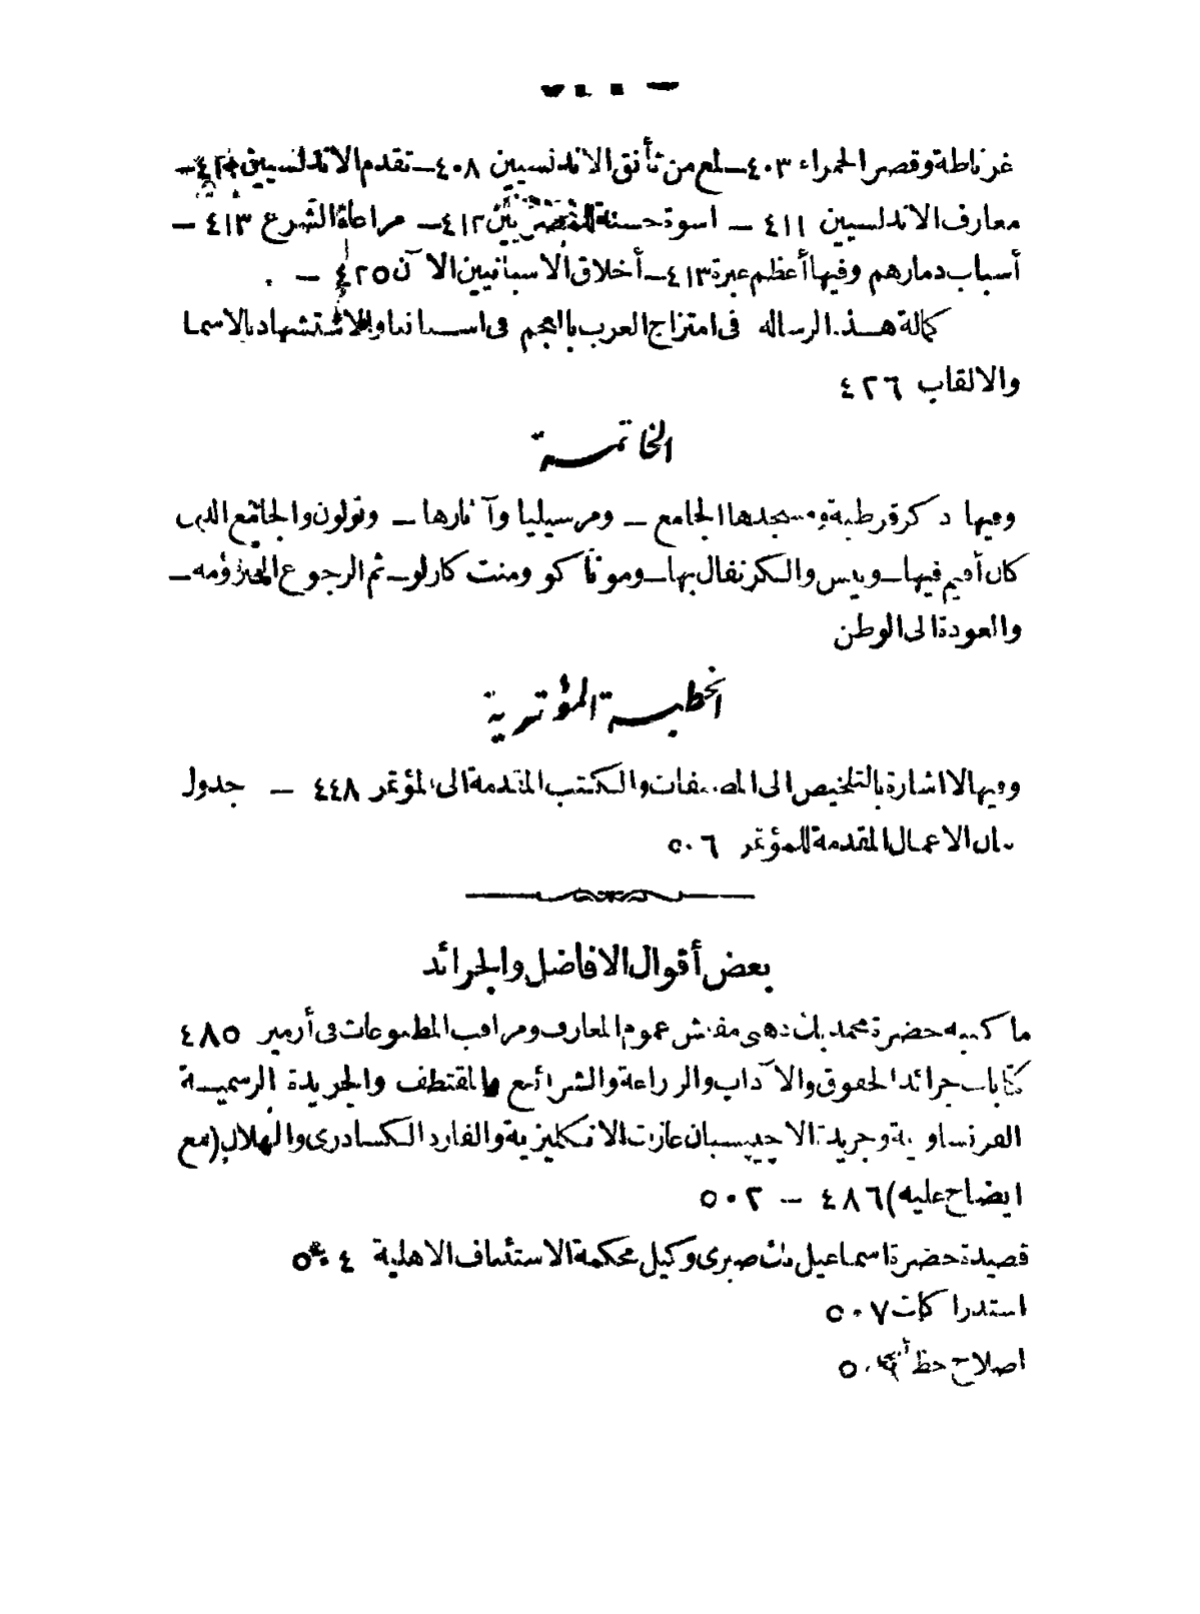 غرناطة وقصر الحمراء ٤٠٣ــ لمع من تأنق الاندلسيين ٤٠٨ــ تقدم الاندلسيين
معارف الاندلسيين ٤١١ ــ اسوة حسنة للمصريين ٤١٢ــ مراعاة الشرع ٤١٣ ــ
أسباب دمارهم وفيها أعظم عبرة ٤١٣ــ أخلاق الاسبانيين الآن ٤٢٥ ــ
تكملة هذه الرسالة فى امتزاج العرب بالعجم فى اسبانيا والاستشهاد بالاسما
والالقاب ٤٢٦
الخاتمــة
وفيها ذكر قرطبة ومسجدها الجامع ــ ومرسيليا وآثارها ــ وتولون والجامع الذى
كان أقيم فيها ــ ونيس والكرنفال بها ــ وموناكو ومنت كارلو ــ ثم الرجوع الى رومه ــ
والعودة الى الوطن
الخطبــة المؤتمرية
وفيها الاشارة بالتلخيص الى المصنفات والكتب المقدمة الى المؤتمر ٤٤٨ ــ جدول
بيان الاعمال المقدمة للمؤتمر ٥٠٦
بعض أقوال الافاضل والجرائد
ما كتبه حضرة محمد بك مفتش عموم المعارف ومراقب المطبوعات فى أزمير ٤٨٥
كتابات جرائد الحقوق والآداب والزراعة والشرائع والمقتطف والجريدة الرسمية
الفرنساوية وجريدة الاجيبسيان غازت الانكليزية والفارد الكسادرى والهلال (مع
ايضاح عليه) ٤٨٦ ــ ٥٠٢
قصيدة حضرة اسماعيل بك صبرى وكيل محكمة الاستئناف الاهلية ٥٠٤
استدراكات ٥٠٧
اصلاح خطأ ٥٠٩